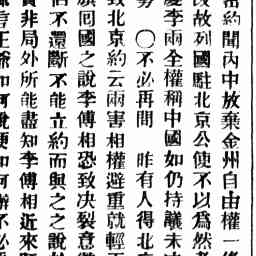 密約聞內中放棄金州自由權一條
改故列國駐北京公使不以爲然者
慶李兩全權稱中國如仍持議未決
○不必再問　昨有人得北京
致北京約云兩害相權避重就輕
旗回國之說李傅相恐致決裂意
不還斷不能立約而與之之說
實非局外所能盡知李傅相近來